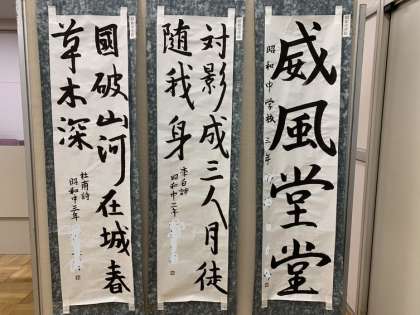 威風堂堂
昭和中学校 三年
対影成三人月徒
随我身
李白詩
昭和中二年
國破山河在城春
草木深
杜甫詩
昭和中三年